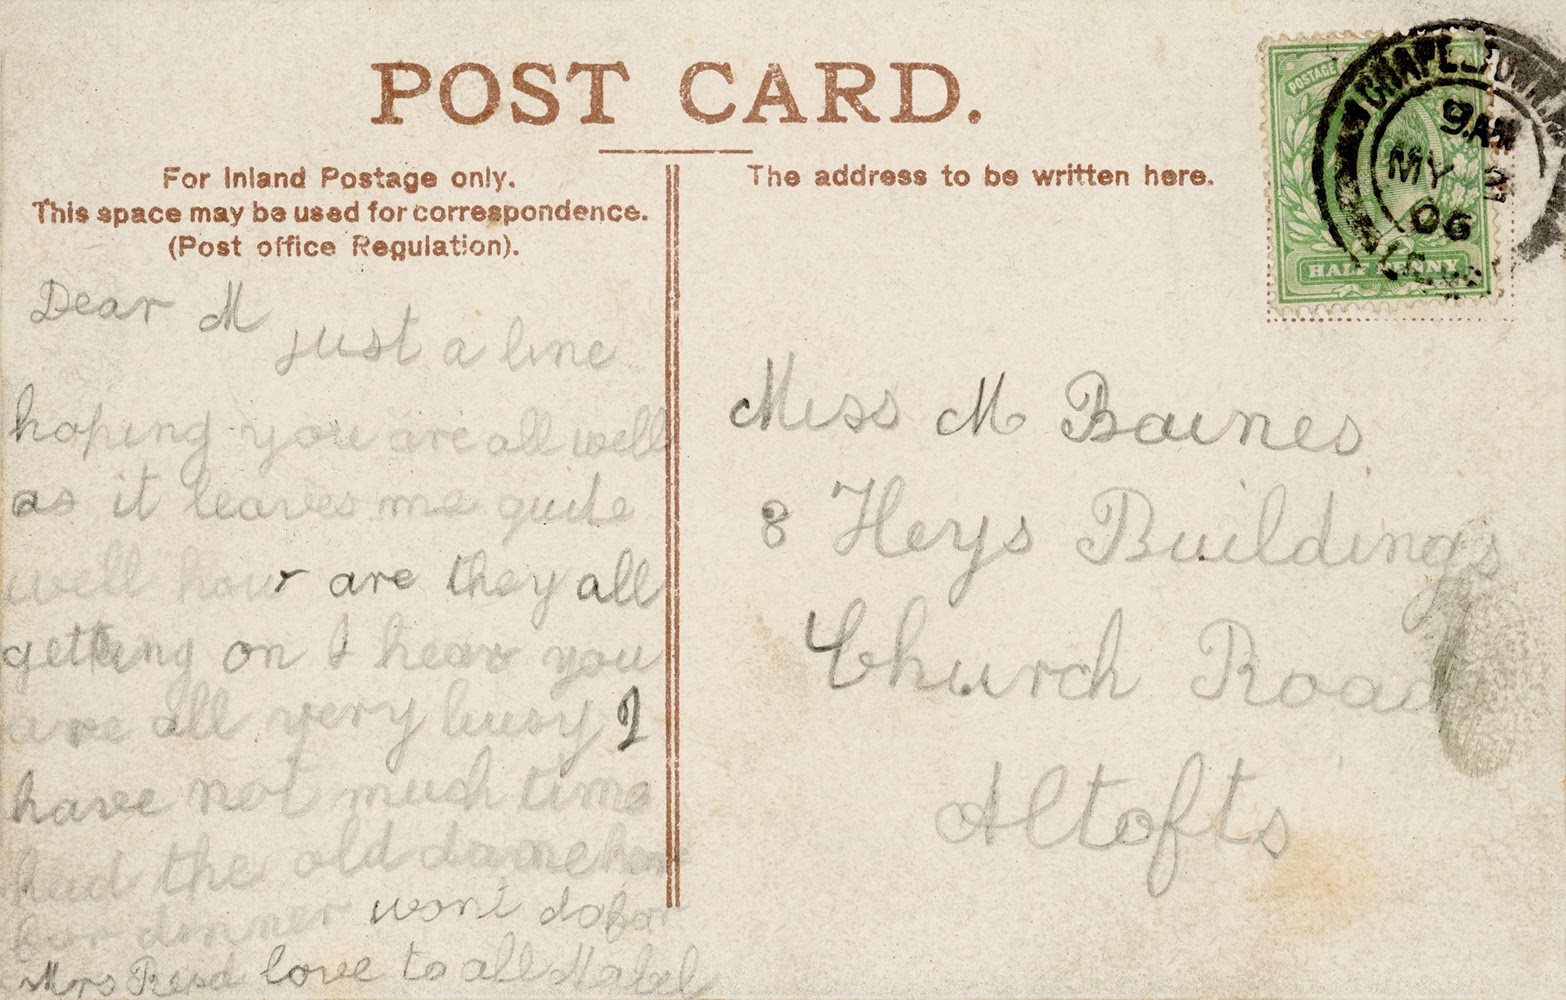 POST CARD.
For Inland Postage only.
This space may be used for correspondence.
(Post office Regulation).
The address to be written here.
POSTAGE
HALF PENNY
9.AM
MY 2
06
Dear M
just a line
hoping you are all well
as it leaves me quite
well how are they all
getting on I hear you
are all very busy I
have not much time
had the old dame here
for dinner wont do for
Mrs Read love to all Mabel
Miss M Baines
8 Heys Buildings
Church Road
Altofts